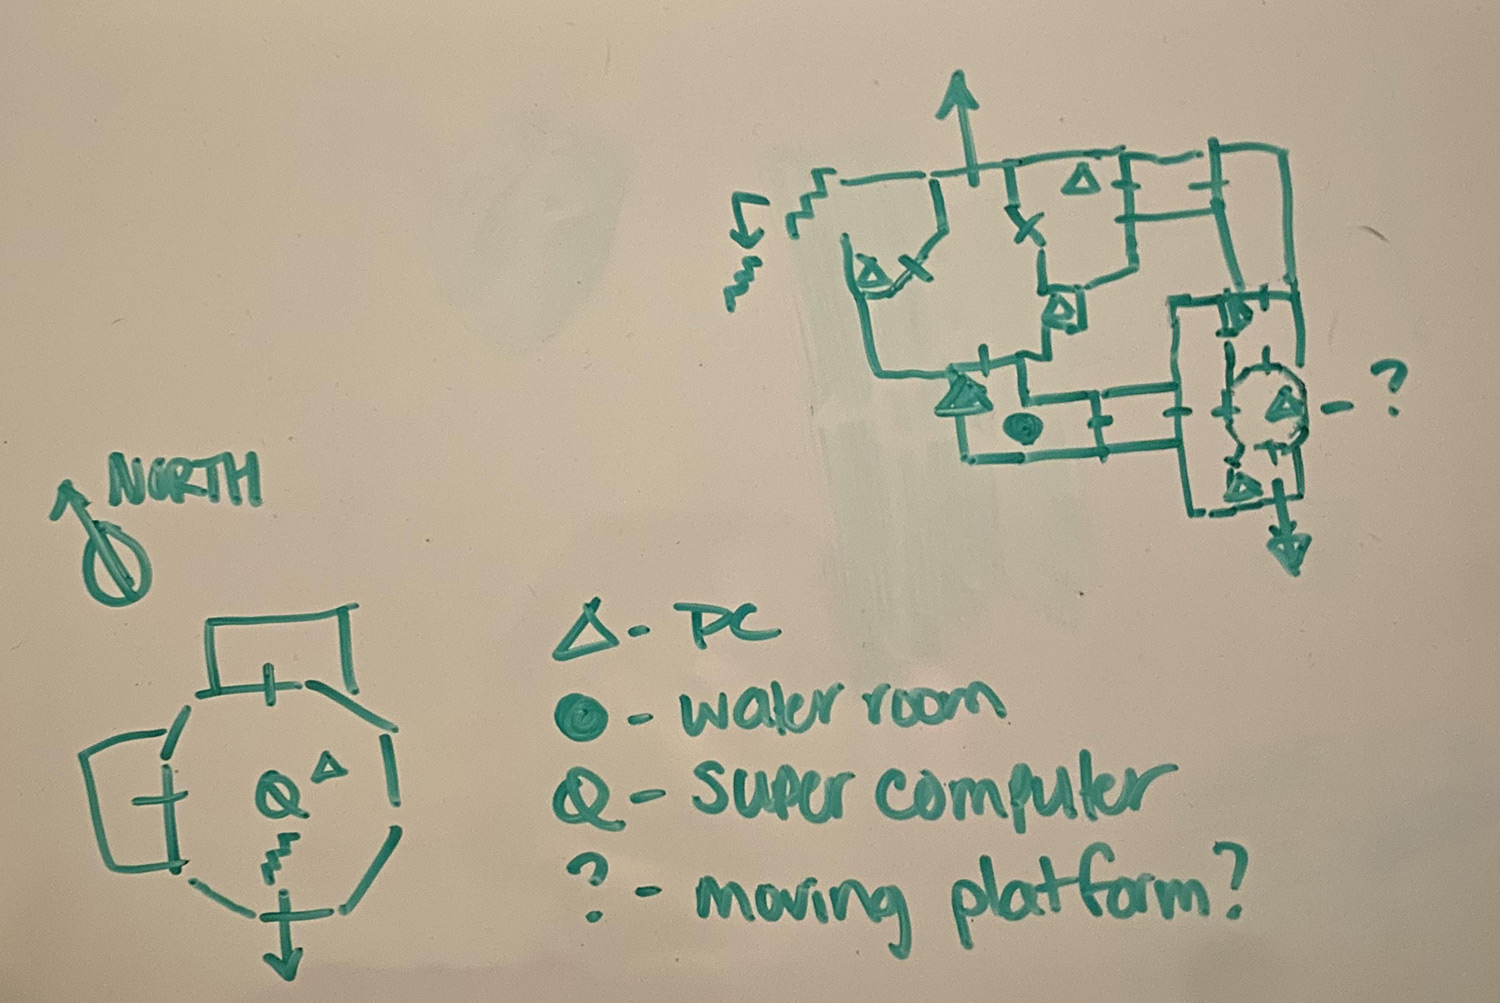 ?
NORTH
Δ - PC
● - water room
Q - super computer
? - moving platform?
Q